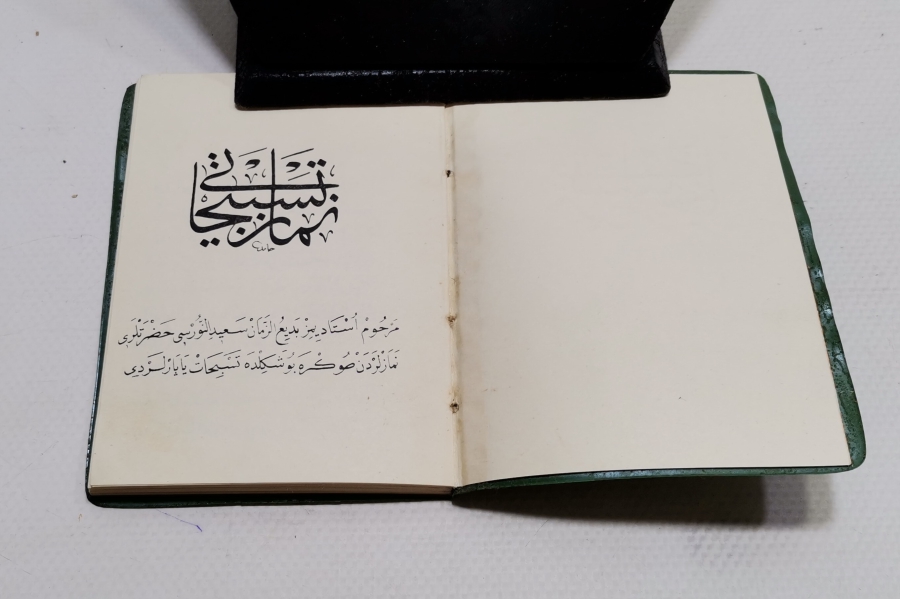 نماز تسبيحاتى
حامد
مَرْحُومْ اُسْتَاديمِزْ بَدِيعُ الزَّمَانْ سَعِيدِالنُّورْسِى حَضْرَتْلَرِى
نَمَازْلَرْدَنْ صُوڭْرَه بُو شَكِلْدَه تَسْبِيحَاتْ يَاپَارْلَرْدِى